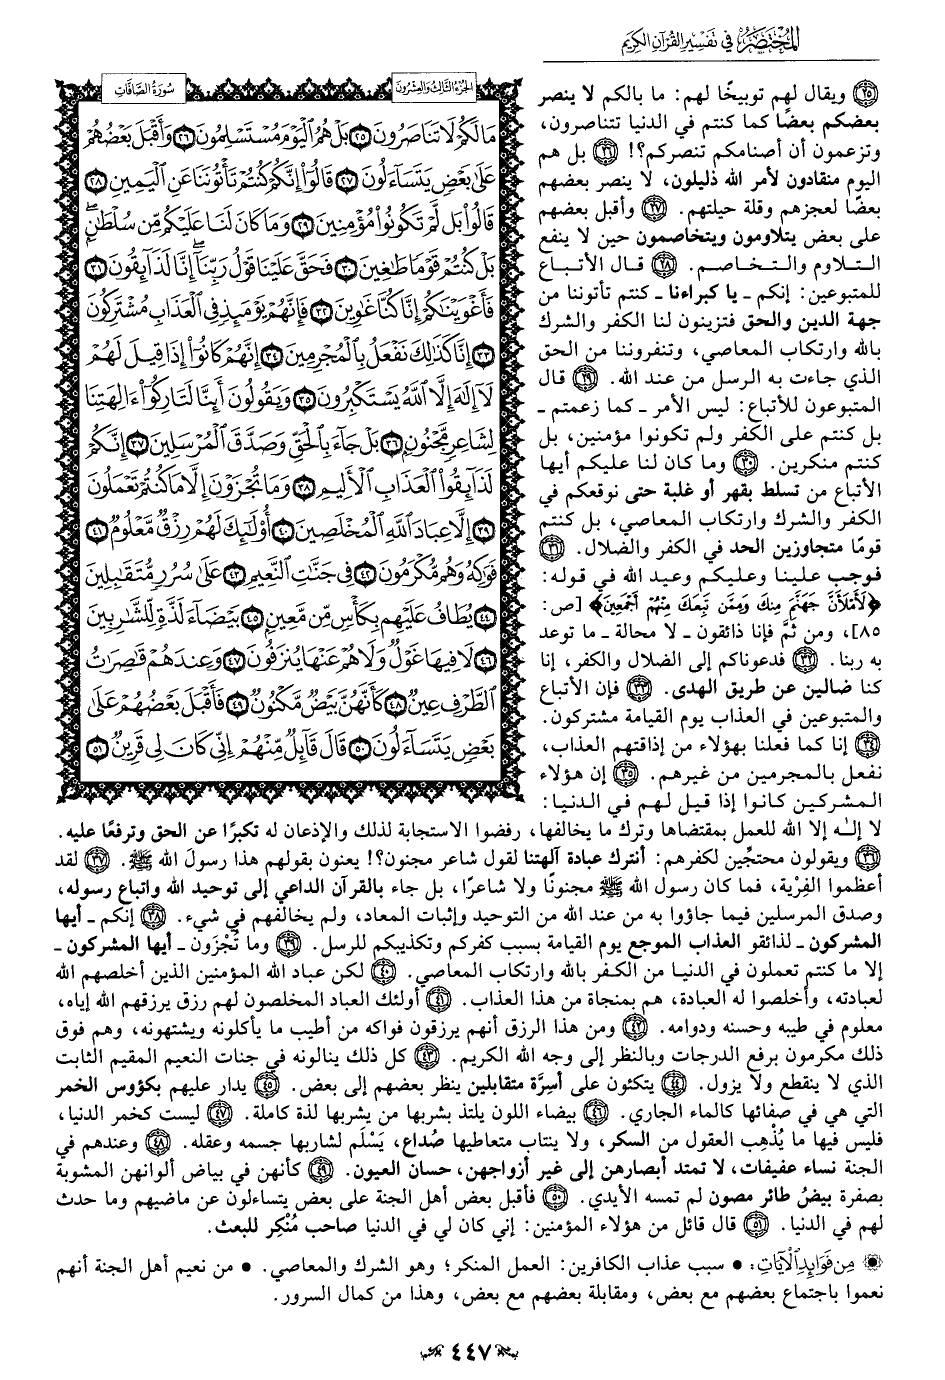 المختصر في تفسير القرآن الكريم
الجزء الثالث والعشرون
سورة الصافات
مَا لَكُمْ لَا تَنَاصَرُونَ ٢٥ بَلْ هُمُ الْيَوْمَ مُسْتَسْلِمُونَ ٢٦ وَأَقْبَلَ بَعْضُهُمْ
عَلَىٰ بَعْضٍ يَتَسَاءَلُونَ ٢٧ قَالُوا إِنَّكُمْ كُنتُمْ تَأْتُونَنَا عَنِ الْيَمِينِ ٢٨
قَالُوا بَل لَّمْ تَكُونُوا مُؤْمِنِينَ ٢٩ وَمَا كَانَ لَنَا عَلَيْكُم مِّن سُلْطَانٍ ۖ
بَلْ كُنتُمْ قَوْمًا طَاغِينَ ٣٠ فَحَقَّ عَلَيْنَا قَوْلُ رَبِّنَا ۖ إِنَّا لَذَائِقُونَ ٣١
فَأَغْوَيْنَاكُمْ إِنَّا كُنَّا غَاوِينَ ٣٢ فَإِنَّهُمْ يَوْمَئِذٍ فِي الْعَذَابِ مُشْتَرِكُونَ
٣٣ إِنَّا كَذَٰلِكَ نَفْعَلُ بِالْمُجْرِمِينَ ٣٤ إِنَّهُمْ كَانُوا إِذَا قِيلَ لَهُمْ
لَا إِلَٰهَ إِلَّا اللَّهُ يَسْتَكْبِرُونَ ٣٥ وَيَقُولُونَ أَئِنَّا لَتَارِكُو آلِهَتِنَا
لِشَاعِرٍ مَّجْنُونٍ ٣٦ بَلْ جَاءَ بِالْحَقِّ وَصَدَّقَ الْمُرْسَلِينَ ٣٧ إِنَّكُمْ
لَذَائِقُو الْعَذَابِ الْأَلِيمِ ٣٨ وَمَا تُجْزَوْنَ إِلَّا مَا كُنتُمْ تَعْمَلُونَ
٣٩ إِلَّا عِبَادَ اللَّهِ الْمُخْلَصِينَ ٤٠ أُولَٰئِكَ لَهُمْ رِزْقٌ مَّعْلُومٌ ٤١
فَوَاكِهُ وَهُم مُّكْرَمُونَ ٤٢ فِي جَنَّاتِ النَّعِيمِ ٤٣ عَلَىٰ سُرُرٍ مُّتَقَابِلِينَ
٤٤ يُطَافُ عَلَيْهِم بِكَأْسٍ مِّن مَّعِينٍ ٤٥ بَيْضَاءَ لَذَّةٍ لِّلشَّارِبِينَ
٤٦ لَا فِيهَا غَوْلٌ وَلَا هُمْ عَنْهَا يُنزَفُونَ ٤٧ وَعِندَهُمْ قَاصِرَاتُ
الطَّرْفِ عِينٌ ٤٨ كَأَنَّهُنَّ بَيْضٌ مَّكْنُونٌ ٤٩ فَأَقْبَلَ بَعْضُهُمْ عَلَىٰ
بَعْضٍ يَتَسَاءَلُونَ ٥٠ قَالَ قَائِلٌ مِّنْهُمْ إِنِّي كَانَ لِي قَرِينٌ ٥١
٢٥ ويقال لهم توبيخًا لهم: ما بالكم لا ينصر
بعضكم بعضًا كما كنتم في الدنيا تتناصرون،
وتزعمون أن أصنامكم تنصركم؟! ٢٦ بل هم
اليوم منقادون لأمر الله ذليلون، لا ينصر بعضهم
بعضًا لعجزهم وقلة حيلتهم. ٢٧ وأقبل بعضهم
على بعض يتلاومون ويتخاصمون حين لا ينفع
التلاوم والتخاصم. ٢٨ قال الأتباع
للمتبوعين: إنكم ـ يا كبراءنا ـ كنتم تأتوننا من
جهة الدين والحق فتزينون لنا الكفر والشرك
بالله وارتكاب المعاصي، وتنفروننا من الحق
الذي جاءت به الرسل من عند الله. ٢٩ قال
المتبوعون للأتباع: ليس الأمر ـ كما زعمتم ـ
بل كنتم على الكفر ولم تكونوا مؤمنين، بل
كنتم منكرين. ٣٠ وما كان لنا عليكم أيها
الأتباع من تسلط بقهر أو غلبة حتى نوقعكم في
الكفر والشرك وارتكاب المعاصي، بل كنتم
قومًا متجاوزين الحد في الكفر والضلال. ٣١
فوجب علينا وعليكم وعيد الله في قوله:
﴿لَأَمْلَأَنَّ جَهَنَّمَ مِنكَ وَمِمَّن تَبِعَكَ مِنْهُمْ أَجْمَعِينَ﴾ [ص:
٨٥]، ومن ثَمَّ فإنا ذائقون ـ لا محالة ـ ما توعد
به ربنا. ٣٢ فدعوناكم إلى الضلال والكفر، إنا
كنا ضالين عن طريق الهدى. ٣٣ فإن الأتباع
والمتبوعين في العذاب يوم القيامة مشتركون.
٣٤ إنا كما فعلنا بهؤلاء من إذاقتهم العذاب،
نفعل بالمجرمين من غيرهم. ٣٥ إن هؤلاء
المشركين كانوا إذا قيل لهم في الدنيا:
لا إلـٰه إلا الله للعمل بمقتضاها وترك ما يخالفها، رفضوا الاستجابة لذلك والإذعان له تكبرًا عن الحق وترفعًا عليه.
٣٦ ويقولون محتجِّين لكفرهم: أنترك عبادة آلهتنا لقول شاعر مجنون؟! يعنون بقولهم هذا رسولَ الله ﷺ. ٣٧ لقد
أعظموا الفِرْية، فما كان رسول الله ﷺ مجنونًا ولا شاعرًا، بل جاء بالقرآن الداعي إلى توحيد الله واتباع رسوله،
وصدق المرسلين فيما جاؤوا به من عند الله من التوحيد وإثبات المعاد، ولم يخالفهم في شيء. ٣٨ إنكم ـ أيها
المشركون ـ لذائقو العذاب الموجع يوم القيامة بسبب كفركم وتكذيبكم للرسل. ٣٩ وما تُجْزَون ـ أيها المشركون ـ
إلا ما كنتم تعملون في الدنيا من الكفر بالله وارتكاب المعاصي. ٤٠ لكن عباد الله المؤمنين الذين أخلصهم الله
لعبادته، وأخلصوا له العبادة، هم بمنجاة من هذا العذاب. ٤١ أولئك العباد المخلصون لهم رزق يرزقهم الله إياه،
معلوم في طيبه وحسنه ودوامه. ٤٢ ومن هذا الرزق أنهم يرزقون فواكه من أطيب ما يأكلونه ويشتهونه، وهم فوق
ذلك مكرمون برفع الدرجات وبالنظر إلى وجه الله الكريم. ٤٣ كل ذلك ينالونه في جنات النعيم المقيم الثابت
الذي لا ينقطع ولا يزول. ٤٤ يتكئون على أسِرَّة متقابلين ينظر بعضهم إلى بعض. ٤٥ يدار عليهم بكؤوس الخمر
التي هي في صفائها كالماء الجاري. ٤٦ بيضاء اللون يلتذ بشربها من يشربها لذة كاملة. ٤٧ ليست كخمر الدنيا،
فليس فيها ما يُذْهِب العقول من السكر، ولا ينتاب متعاطيها صُداع، يَسْلَم لشاربها جسمه وعقله. ٤٨ وعندهم في
الجنة نساء عفيفات، لا تمتد أبصارهن إلى غير أزواجهن، حسان العيون. ٤٩ كأنهن في بياض ألوانهن المشوبة
بصفرة بيضُ طائر مصون لم تمسه الأيدي. ٥٠ فأقبل بعض أهل الجنة على بعض يتساءلون عن ماضيهم وما حدث
لهم في الدنيا. ٥١ قال قائل من هؤلاء المؤمنين: إني كان لي في الدنيا صاحب مُنْكِر للبعث.
من فوائد الآيات: • سبب عذاب الكافرين: العمل المنكر؛ وهو الشرك والمعاصي. • من نعيم أهل الجنة أنهم
نعموا باجتماع بعضهم مع بعض، ومقابلة بعضهم مع بعض، وهذا من كمال السرور.
٤٤٧